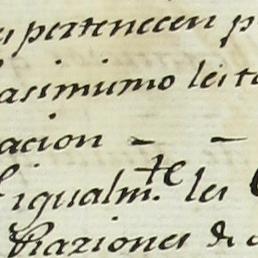 pertenecen p
asimismo les t
acion - -
igualm.te les
Raziones de